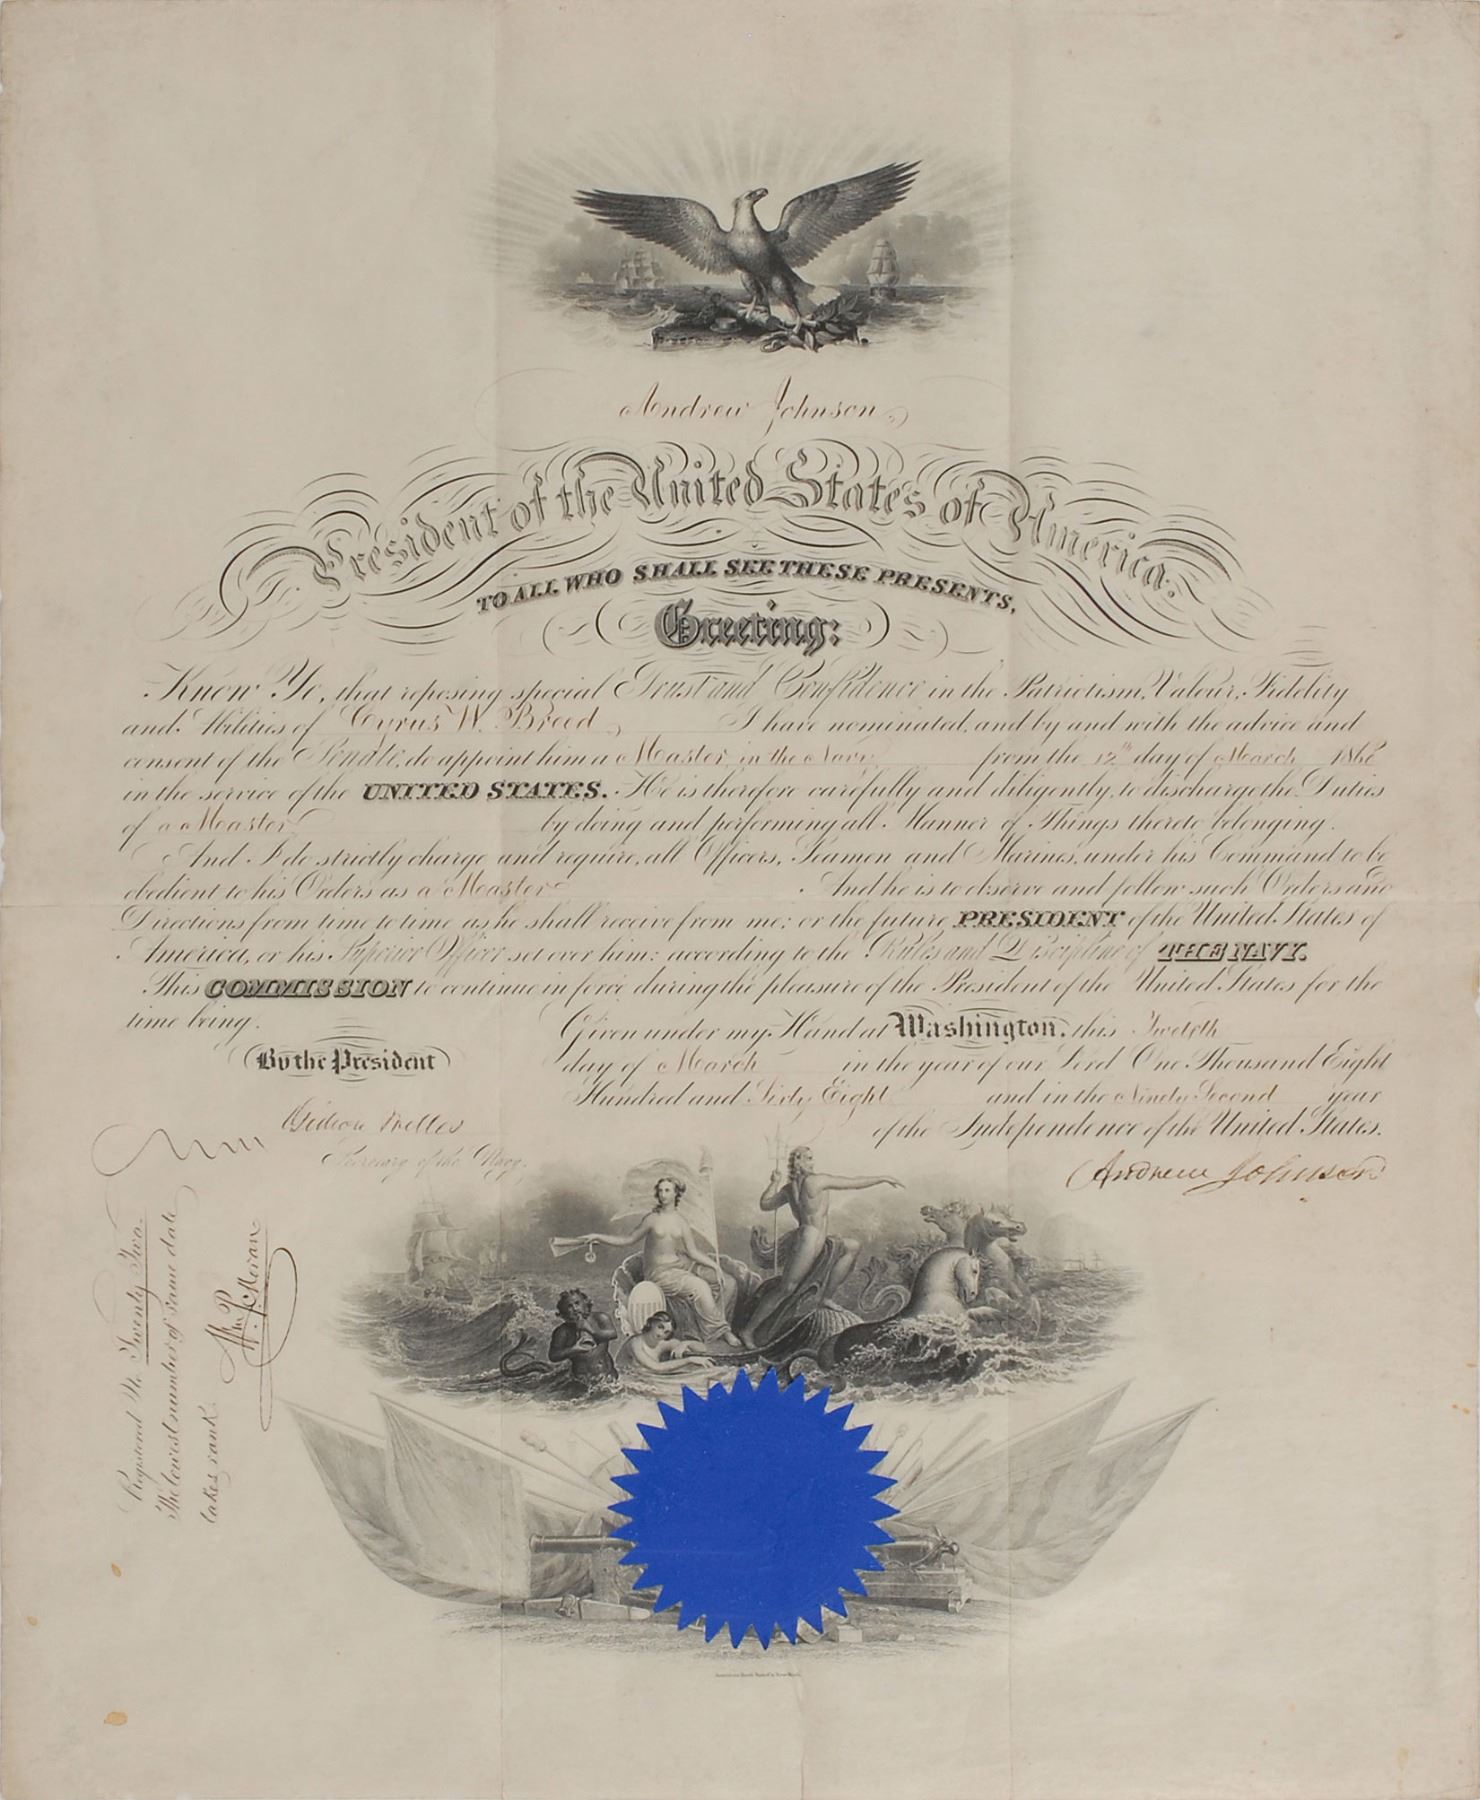 Andrew Johnson,
President of the United States of America.
TO ALL WHO SHALL SEE THESE PRESENTS,
Greeting:
Know Ye, that reposing special Trust and Confidence in the Patriotism, Valour, Fidelity
and Abilities of Cyrus W. Breed, I have nominated, and by and with the advice and
consent of the Senate, do appoint him a Master in the Navy from the 12th day of March 1868
in the service of the UNITED STATES. He is therefore carefully and diligently, to discharge the Duties
of a Master by doing and performing all Manner of Things thereto belonging.
And I do strictly charge and require, all Officers, Seamen and Marines, under his Command to be
obedient to his Orders as a Master And he is to observe and follow such Orders and
Directions from time to time as he shall receive from me; or the future PRESIDENT of the United States of
America, or his Superior Officer set over him: according to the Rules and Discipline of THE NAVY.
This COMMISSION to continue in force during the pleasure of the President of the United States for the
time being.
Given under my Hand at Washington, this Twelfth
day of March in the year of our Lord One Thousand Eight
Hundred and Sixty Eight and in the Ninety Second year
of the Independence of the United States.
By the President
Andrew Johnson
Gideon Welles
Secretary of the Navy.
Registered No. Twenty Two.
The lowest number of same date
takes rank.